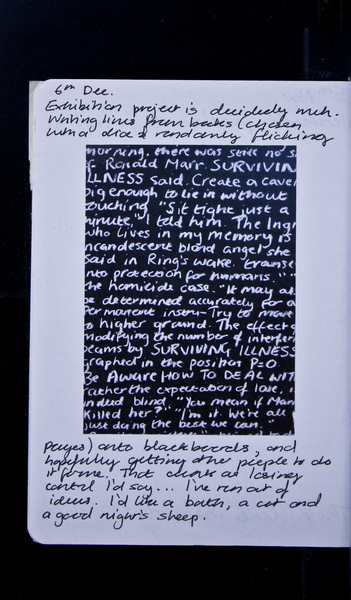 6th Dec.
Exhibition project is decidedly meh.
Writing lines from books (chosen
with a dice & randomly flicking
morning. there was still no s
f Ronald Marr. SURVIVIN
LLNESS said. Create a caver
big enough to lie in without
touching "Sit tight just a
minute," I told him. The Ingr
who lives in my memory is
ncandescent blond angel she
said in Ring's wake. transe
into protection for humans." "
the homicide case. "It may al
be determined accurately for a
Permanent instru- Try to move
to higher ground. The effect o
modifying the number of interfer
beams by SURVIVING ILLNESS
graphed in the position P=0
Be AWARE HOW TO DEAL WIT
rather the expectation of love, i
indeed blind. "You mean if Man
killed her?" "I'm it. We're all
just doing the best we can."
pages) onto blackboards, and
hopefully getting other people to do
it for me! That counts as losing
control I'd say... I've run out of
ideas. I'd like a bath, a cat and
a good night's sheep.